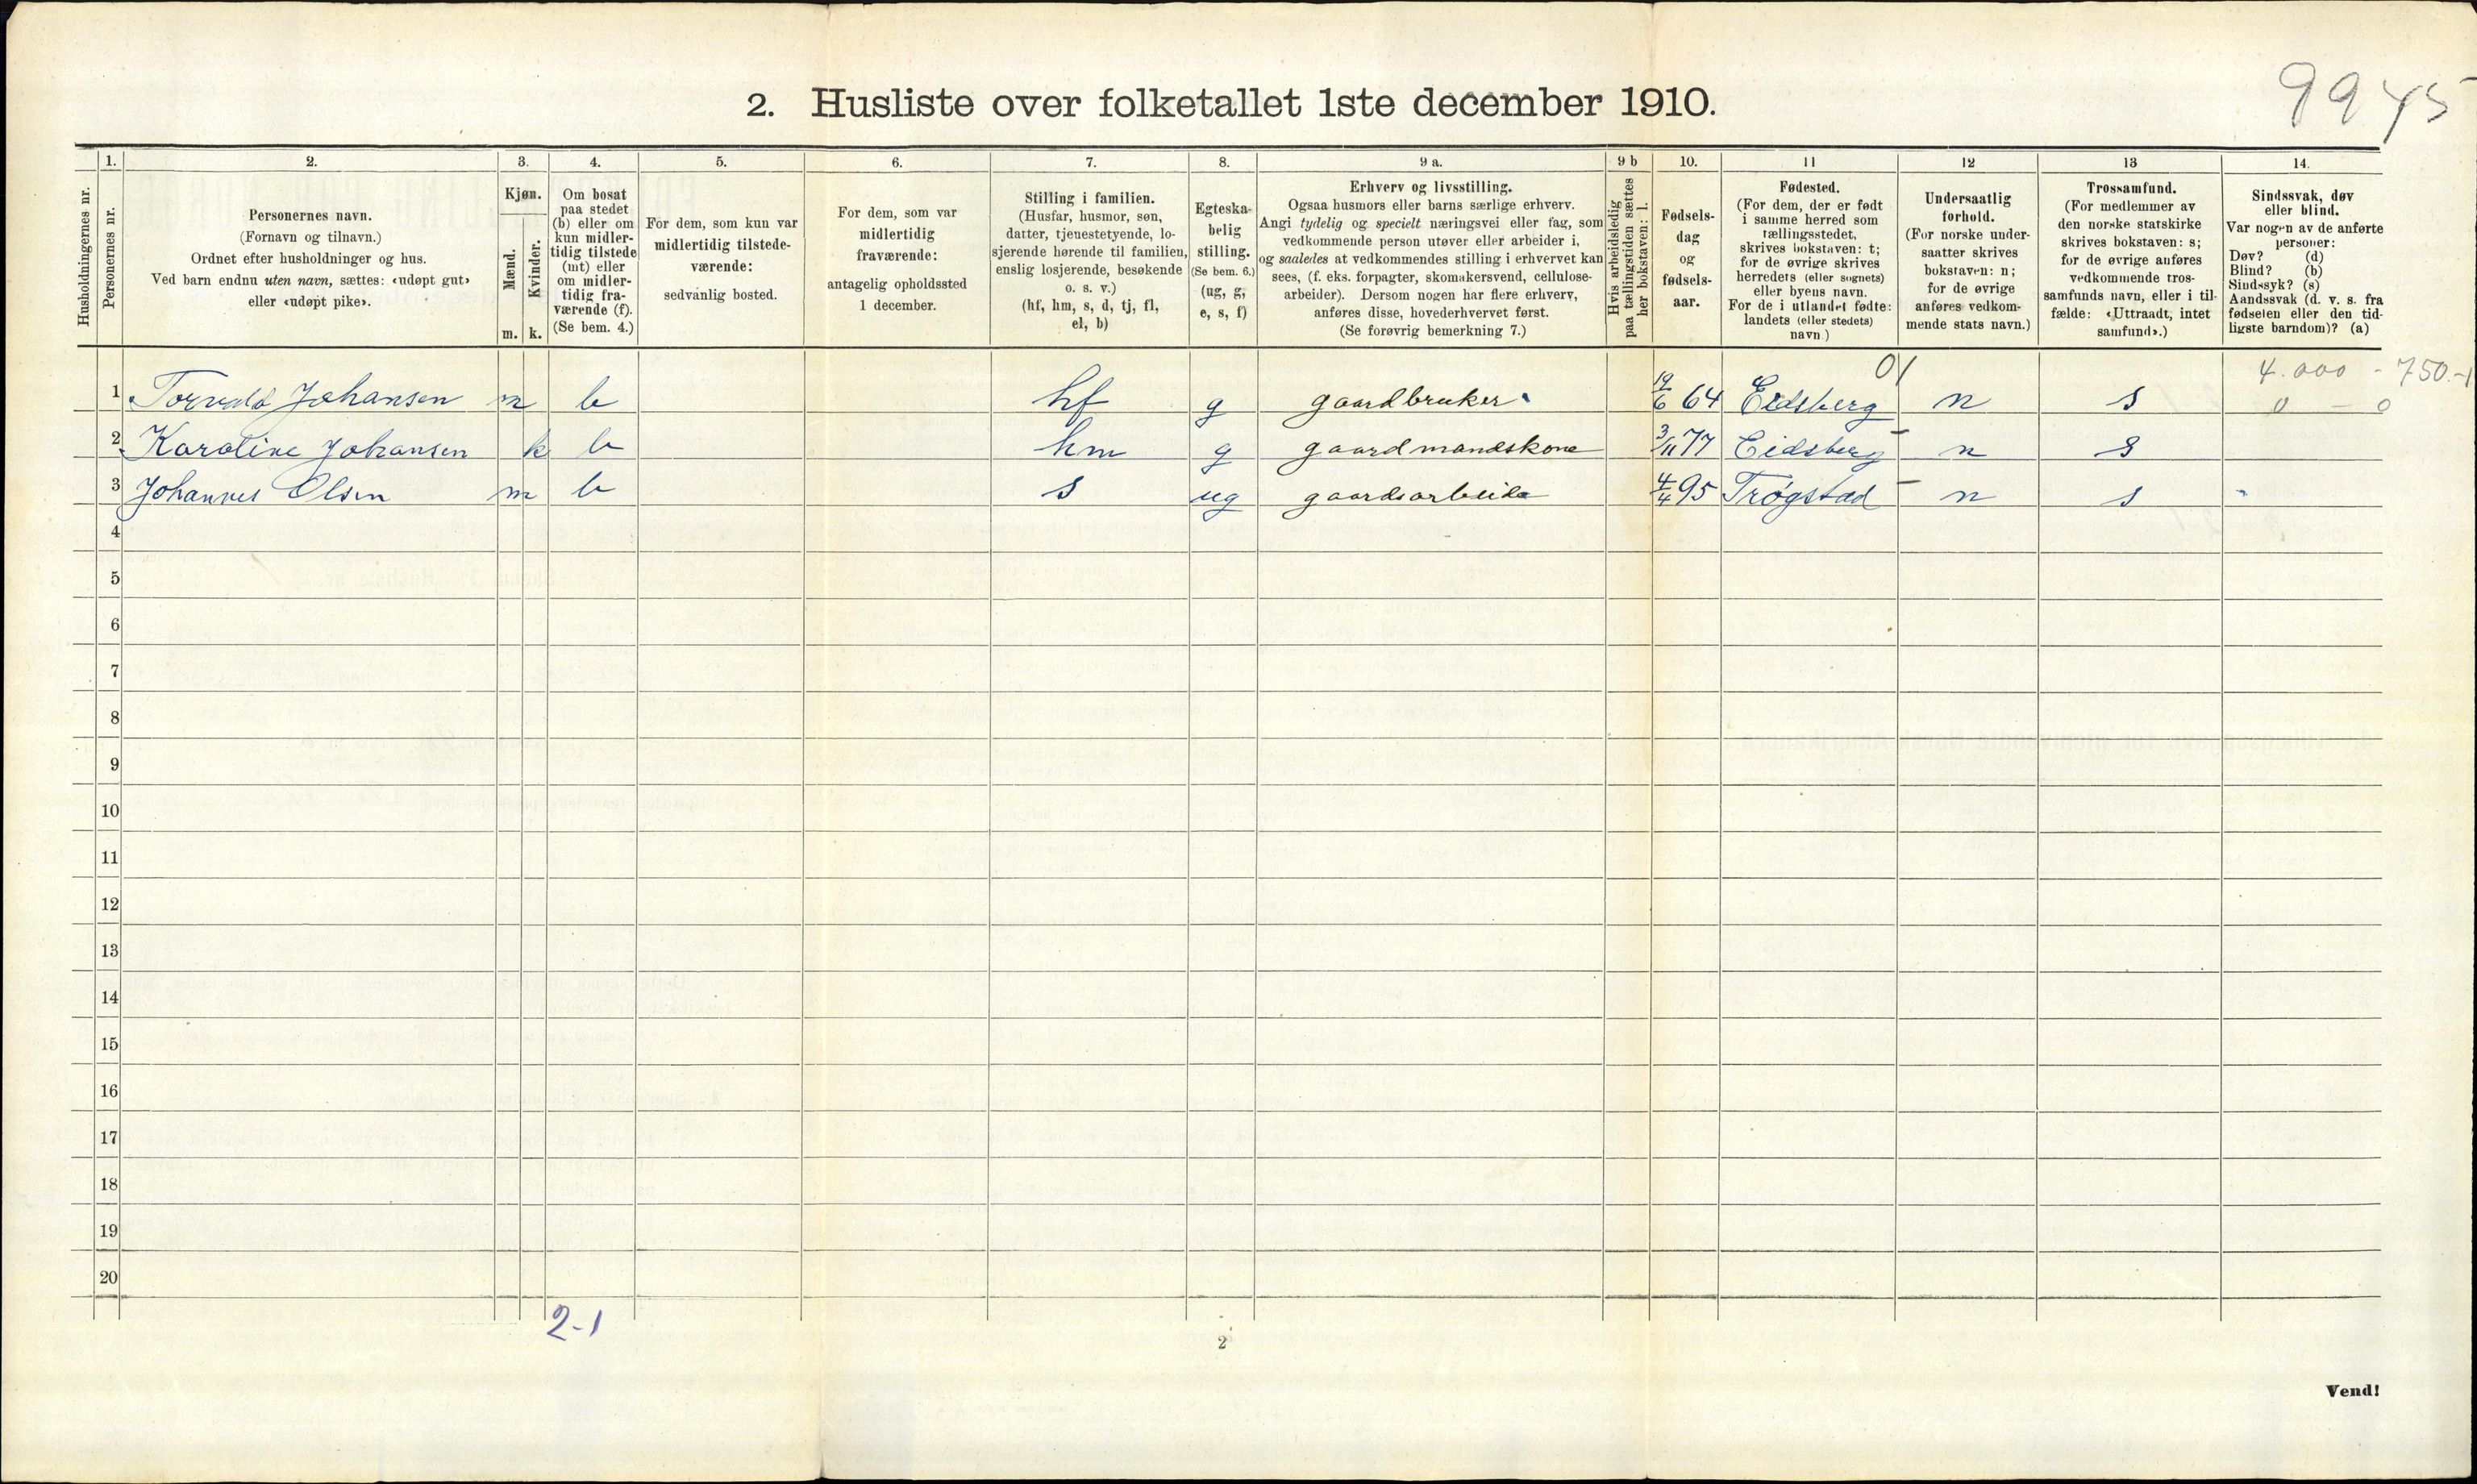 9945
2. Husliste over folketallet 1ste december 1910.
Husholdningernes nr.
1.
Personernes nr.
2.
Personernes navn.
(Fornavn og tilnavn.)
Ordnet efter husholdninger og hus.
Ved barn endnu uten navn, sættes: «udøpt gut»
eller «udøpt pike».
3.
Kjøn.
Mænd.
m.
Kvinder.
k.
4.
Om bosat
paa stedet
(b) eller om
kun midler-
tidig tilstede
(mt) eller
om midler-
tidig fra-
værende (f).
(Se bem. 4.)
5.
For dem, som kun var
midlertidig tilstede-
værende:
sedvanlig bosted.
6.
For dem, som var
midlertidig
fraværende:
antagelig opholdssted
1 december.
7.
Stilling i familien.
(Husfar, husmor, søn,
datter, tjenestetyende, lo-
sjerende hørende til familien,
enslig losjerende, besøkende
o. s. v.)
(hf, hm, s, d, tj, fl,
el, b)
8.
Egteska-
belig
stilling.
(Se bem. 6.)
(ug, g,
e, s, f)
9 a.
Erhverv og livsstilling.
Ogsaa husmors eller barns særlige erhverv.
Angi tydelig og specielt næringsvei eller fag, som
vedkommende person utøver eller arbeider i,
og saaledes at vedkommendes stilling i erhvervet kan
sees, (f. eks. forpagter, skomakersvend, cellulose-
arbeider). Dersom nogen har flere erhverv,
anføres disse, hovederhvervet først.
(Se forøvrig bemerkning 7.)
9 b
Hvis arbeidsledig
paa tællingstiden sættes
her bokstaven: l.
10.
Fødsels-
dag
og
fødsels-
aar.
11
Fødested.
(For dem, der er født
i samme herred som
tællingsstedet,
skrives bokstaven: t;
for de øvrige skrives
herredets (eller sognets)
eller byens navn.
For de i utlandet fødte:
landets (eller stedets)
navn.)
12
Undersaatlig
forhold.
(For norske under-
saatter skrives
bokstaven: n;
for de øvrige
anføres vedkom-
mende stats navn.)
13
Trossamfund.
(For medlemmer av
den norske statskirke
skrives bokstaven: s;
for de øvrige anføres
vedkommende tros-
samfunds navn, eller i til-
fælde: «Uttraadt, intet
samfund».)
14.
Sindssvak, døv
eller blind.
Var nogen av de anførte
personer:
Døv? (d)
Blind? (b)
Sindssyk? (s)
Aandssvak (d. v. s. fra
fødselen eller den tid-
ligste barndom)? (a)
01
4.000 - 750.-
1 Torvald Johansen m b hf g gaardbruker 19/6 64 Eidsberg n s 0 - 0
2 Karoline Johansen k b hm g gaardmandskone 3/11 77 Eidsberg n s
3 Johannes Olsen m b s ug gaardsarbeide 4/4 95 Trøgstad n s
4
5
6
7
8
9
10
11
12
13
14
15
16
17
18
19
20
2-1
2
Vend!